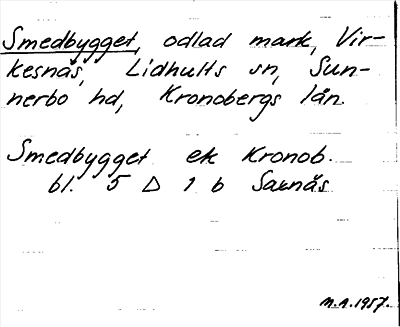 Smedbygget, odlad mark, Vir-
kesnäs, Lidhults sn, Sun-
nerbo hd, Kronobergs län.
Smedbygget ek Kronob.
bl. 5 Δ 1 b Saxnäs
M.A. 1957.